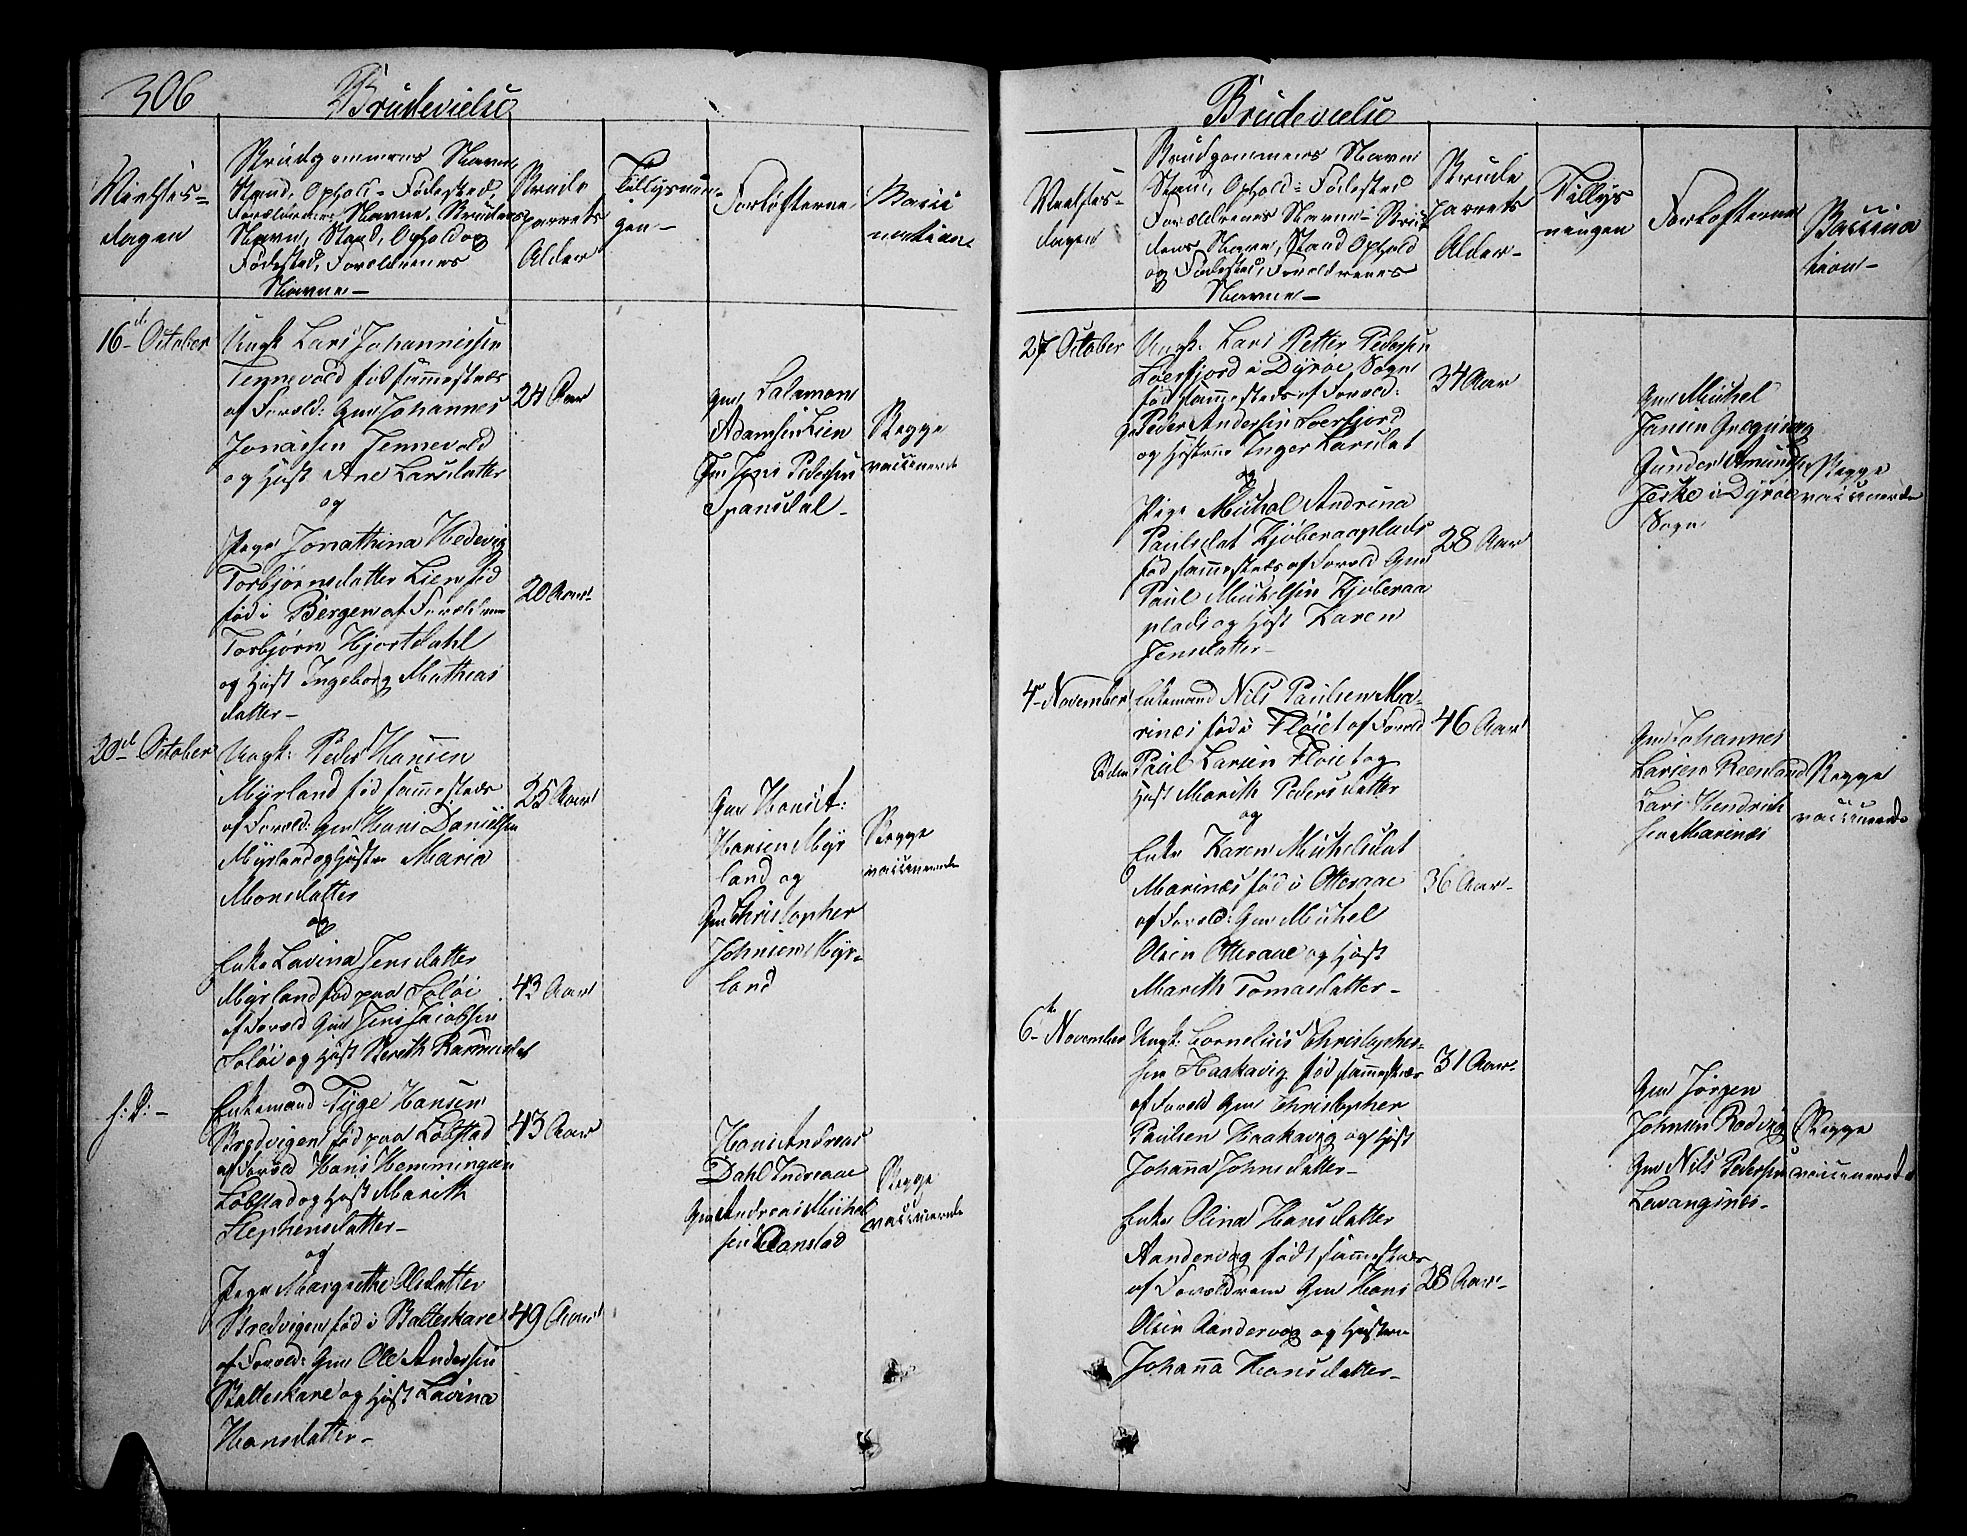 306
Brudevielse
Vielses-
dagen
Brudgommens Navn,
Stand, Ophold- Fødested,
Forældrenes Navne. Brudens
Navn, Stand, Ophold og
Fødested, Forældrenes
Navne-
Brude
parrets
Alder
Tillysnin-
gen-
Forlofterne
Vacci
nation
16de October
Ungk Lars Johannissen
Tennevold fød sammesteds
af Foræld: Gm Johannes
Jonassen Tennevold
og Hust Ane Larsdatter
og
Pige Jonathina Hedevig
Torbjørnsdatter Lien fød
fød i Bergen af Forældrene
Torbjørn Hjortdahl
og Hust Ingeborg Mathias
datter-
24 Aar
20 Aar
Gm Salamon
Adamsen Lien
Gm Jens Pedersen
Spansdal-
Begge
vaccinerede
20de October
Ungk: Peder Hansen
Myrland fød sammesteds
af Foræld: Gm Hans Danielsen
Myrland og Hustru Maria
Monsdatter
og
Enke Lavina Jensdatter
Myrland fød paa Soløi
af Foræld Gm Jens Jacobsen
Soløi og Hust Bereth Rasmusdat
25 Aar
43 Aar
Gm Hans A:
Hansen Myr
land og
Gm Christopher
Johnsen Myr-
land
Begge
vaccinerede
s: D:-
Enkemand Tyge Hansen
Bredvigen fød paa Løbstad
af Foræld Hans Hemmingsen
Løbstad og Hust Marith
Stephensdatter-
og
Pige Margrethe Olsdatter
Bredvigen fød i Balteskare
af Foræld: Gm Ole Andersen
Balteskare og Hust Lavina
Hansdatter-
43 Aar
49 Aar
Hans Andreas
Dahl Indreaae
Gm Andreas Michel
sen Aanstad
Begge
vaccinerede
Brudevielse
Vielses-
dagen
Brudgommens Navn
Stand, Ophold- Fødested
Forældrenes Navne- Bru
dens Navn, Stand Ophold
og Fødested, Forældrenes
Navne-
Brude
parrets
Alder-
Tillys
ningen
Forlofterne
Vaccina
tion-
27 October
Ungk: Lars Petter Pedersen
Loerfjord i Dyrøe Sogn
fød sammesteds af Foræld:
Gm Peder Andersen Loerfjord
og Hustrue Inger Larsdat
og
Pige Michal Andrina
Paulsdat Kjøberaaplads
fød sammesteds af Foræld Gm
Paul Michelsen Kjøberaa
plads og Hust Karen
Jensdatter-
34 Aar
28 Aar
Gm Michel
Jensen
Gunder Amunds
i Dyrøe
Sogn
Begge
vaccinerede
4de November
Enkemand Nils Paulsen Ma-
rinæs fød i Fløiet af Foræld
Paul Larsen Fløiet og
Hust Marith Pedersdatter
og
Enke Karen Michelsdat
Marinæs fød i Otteraae
af Foræld: Gm Michel
Olsen Otteraae og Hust
Marith Tomasdatter-
46 Aar
36 Aar-
Gm Johannes
Larsen Reenland
Lars Hendrich
sen Marinæs
Begge
vaccinerede
6te November
Ungk: Cornelius Christopher-
sen Haakavig fød sammesteds
af Foræld Gm Christopher
Paulsen Haakavig og Hust
Johanna Johnsdatter-
Enke Olina Hansdatter
Aandervag født sammesteds
af Forældrene Gm Hans
Olsen Aandervag og Hustrue
Johanna Hansdatter-
31 Aar-
28 Aar-
Gm Jørgen
Johnsen Rødvig
Gm Nils Pedersen
Levangsnæs-
Begge
vaccinerede